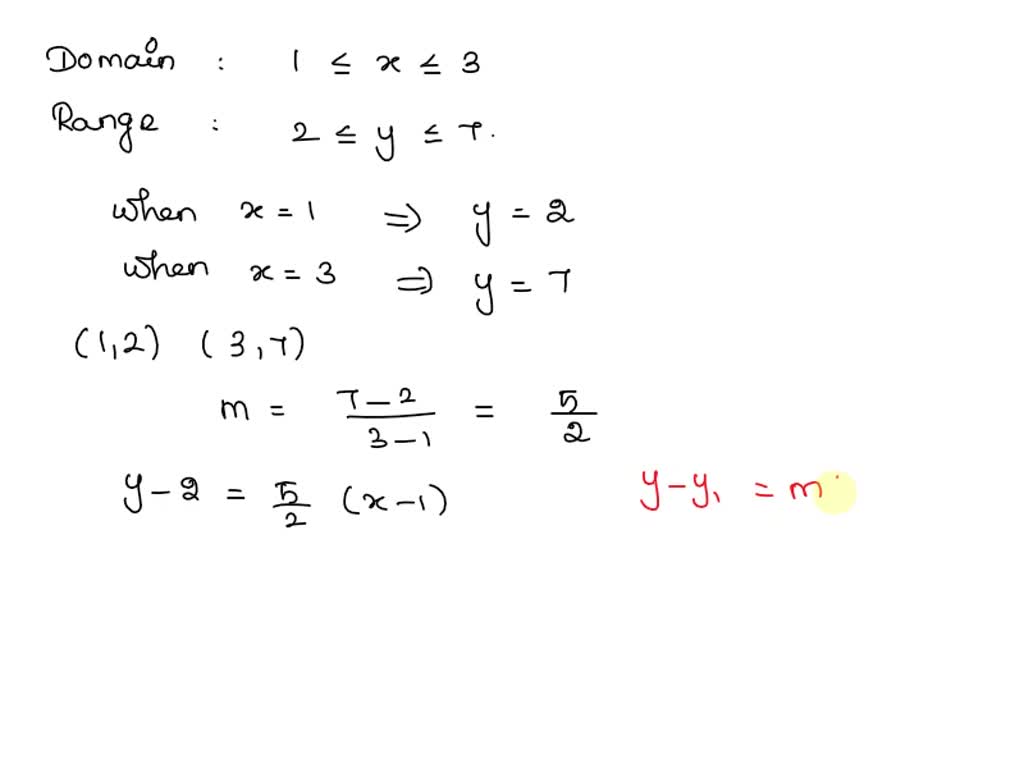 Domain : 1 ≤ x ≤ 3
Range : 2 ≤ y ≤ 7.
when x = 1 ⇒ y = 2
when x = 3 ⇒ y = 7
(1,2) (3,7)
m = 7-2/3-1 = 5/2
y-2 = 5/2 (x-1) y-y₁ = m